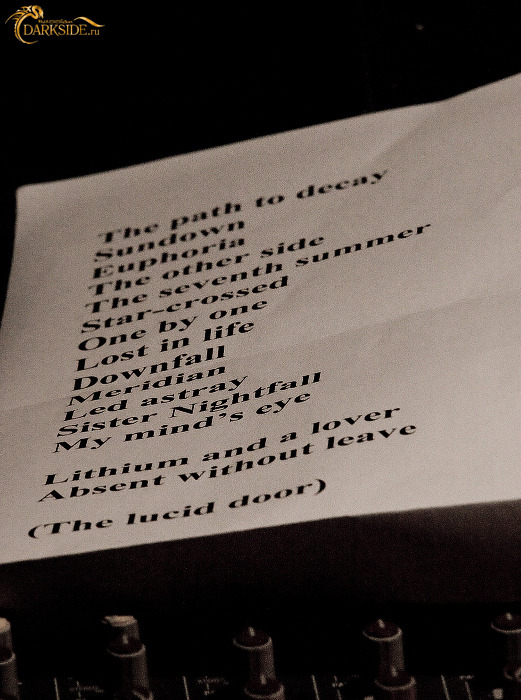 DARKSIDE.ru
The path to decay
Sundown
Euphoria
The other side
The seventh summer
Star-crossed
One by one
Lost in life
Downfall
Meridian
Led astray
Sister Nightfall
My mind's eye
Lithium and a lover
Absent without leave
(The lucid door)